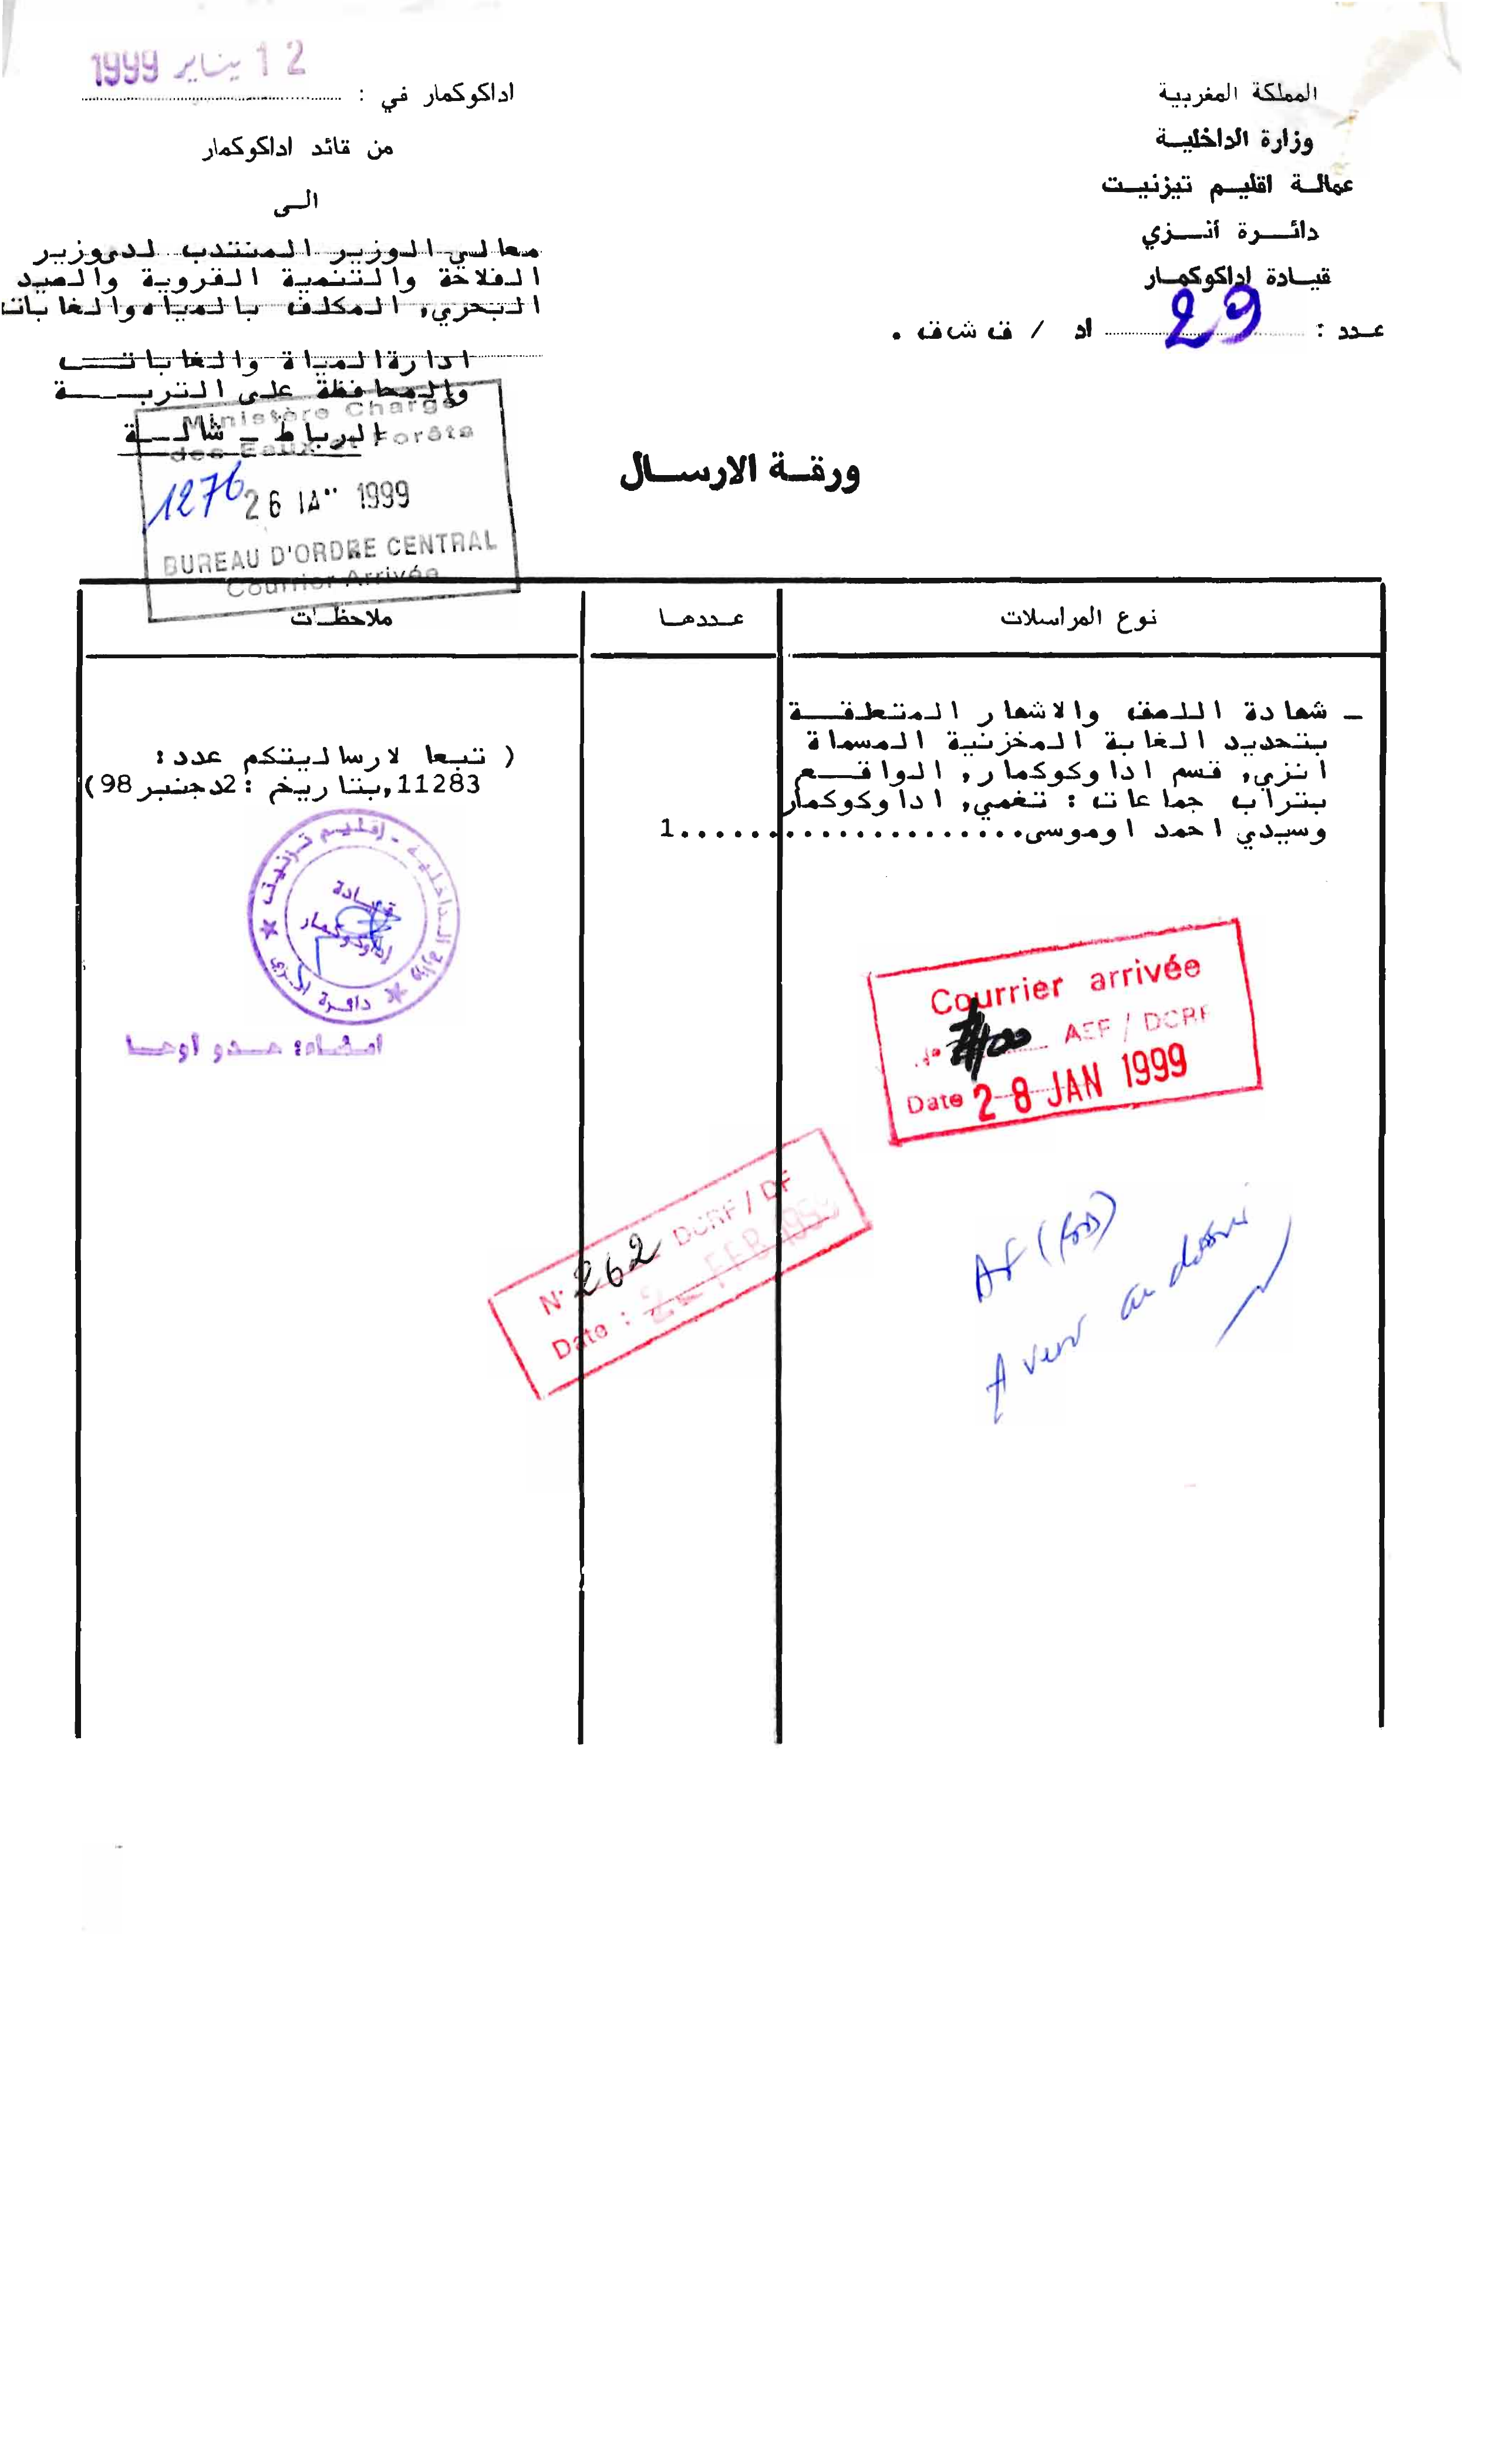 المملكة المغربية
وزارة الداخلية
عمالة اقليم تيزنيت
دائرة أنزي
قيادة اداكوكمار
عدد : 29 اد / ق ش ق .
12 يناير 1999
اداكوكمار في :
من قائد اداكوكمار
الى
معالي الوزير المنتدب لدى وزير
الفلاحة والتنمية القروية والصيد
البحري, المكلف بالمياه والغابات
ادارة المياة والغابات
والمحافظة على التربة
الرباط - شالة
Ministère Chargé
des Eaux et Forêts
1276
26 1999
BUREAU D'ORDRE CENTRAL
Courrier Arrivée
ورقة الارسال
نوع المراسلات
عددها
ملاحظات
- شهادة اللصق والاشهار المتعلقة
بتحديد الغابة المخزنية المسماة
انزي, قسم اداوكوكمار, الواقع
بتراب جماعات : تغمي, اداوكوكمار
وسيدي احمد اوموسى....................1
( تبعا لارساليتكم عدد:
11283,بتاريخ :2دجنبر98)
وزارة الداخلية - إقليم تزنيت
دائرة انزي
قيادة
اداوكوكمار
امضاء: حدو اوحا
Courrier arrivée
N° AEF / DCRF
Date 28 JAN 1999
N° 262 DCRF / DF
Date : 2 FEB 1999
A au dossier